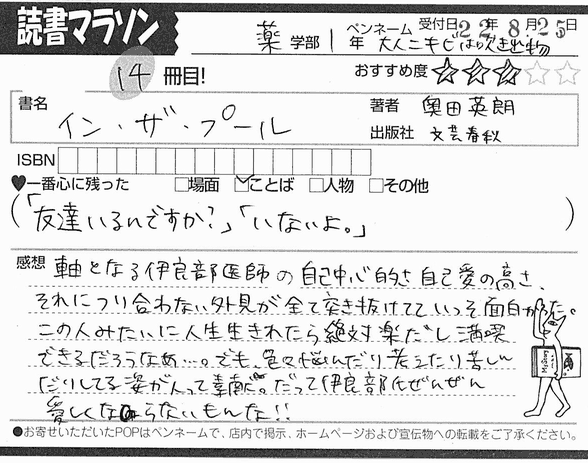 読書マラソン
薬 学部 1年 ペンネーム 大人ニキビは吹き出物 受付日22年8月25日
14冊目! おすすめ度 ★★★☆☆
書名 イン・ザ・プール
著者 奥田英朗
出版社 文芸春秋
ISBN
♥一番心に残った □場面 ☑ことば □人物 □その他
(「友達いるんですか?」「いないよ。」)
感想 軸となる伊良部医師の自己中心的さ、自己愛の高さ、
それにつり合わない外見が全て突き抜けてていっそ面白かった。
この人みたいに人生生きれたら絶対楽だし満喫
できるだろうなぁ…。でも、色々悩んだり考えたり苦しん
だりしてる姿が人って素敵。だって伊良部氏ぜんぜん
愛しくならないもんな!!
●お寄せいただいたPOPはペンネームで、店内で掲示、ホームページおよび宣伝物への転載をご了承ください。